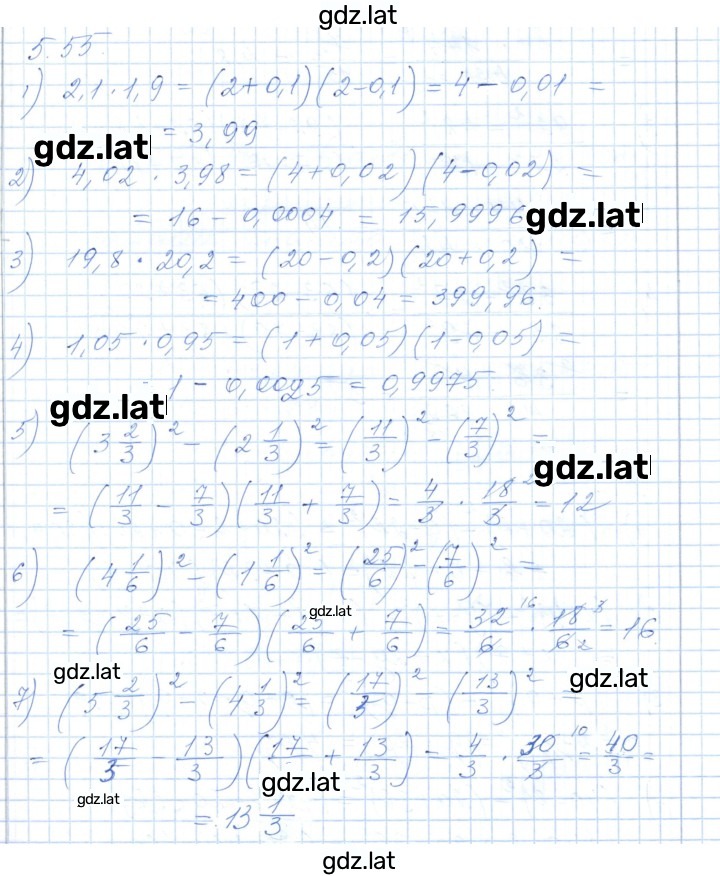 gdz.lat
5.55.
1) 2,1 · 1,9 = (2+0,1)(2-0,1) = 4 - 0,01 =
= 3,99
gdz.lat
2) 4,02 · 3,98 = (4+0,02)(4-0,02) =
= 16 - 0,0004 = 15,9996
gdz.lat
3) 19,8 · 20,2 = (20-0,2)(20+0,2) =
= 400 - 0,04 = 399,96.
4) 1,05 · 0,95 = (1+0,05)(1-0,05) =
= 1 - 0,0025 = 0,9975.
gdz.lat
5) (3 2/3)² - (2 1/3)² = (11/3)² - (7/3)² =
gdz.lat
= (11/3 - 7/3)(11/3 + 7/3) = 4/3 · 18/3 = 12
6) (4 1/6)² - (1 1/6)² = (25/6)² - (7/6)² =
gdz.lat
= (25/6 - 7/6)(25/6 + 7/6) = 32/6 · 18/6 = 16.
gdz.lat
gdz.lat
7) (5 2/3)² - (4 1/3)² = (17/3)² - (13/3)² =
= (17/3 - 13/3)(17/3 + 13/3) = 4/3 · 30/3 = 40/3 =
gdz.lat
gdz.lat
= 13 1/3
gdz.lat